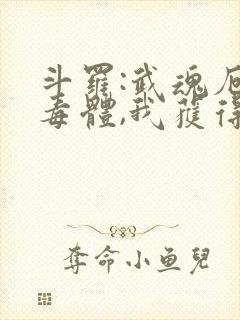 斗羅:武魂厄
毒體,我獲得
奪命小鱼兒